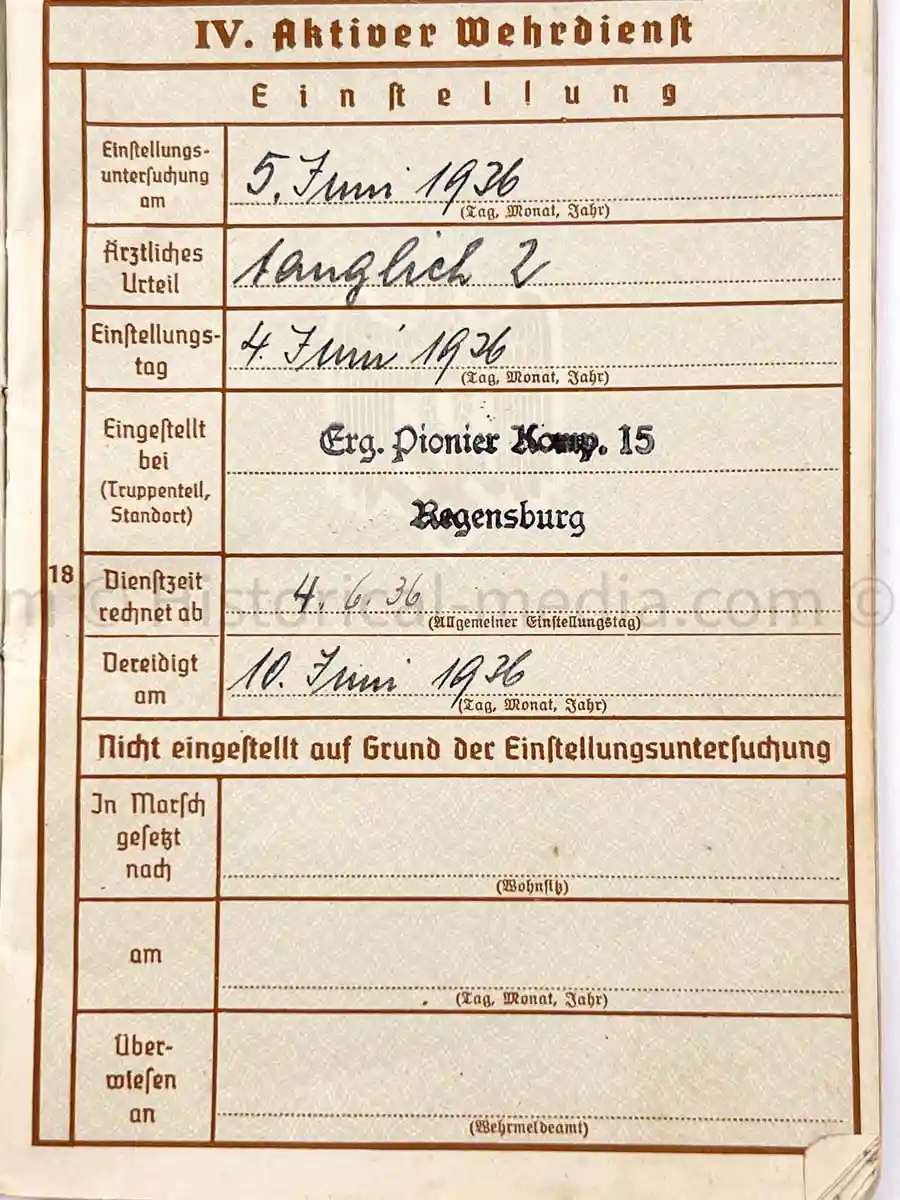 IV. Aktiver Wehrdienst
Einstellung
Einstellungs-
untersuchung
am
5. Juni 1936
(Tag, Monat, Jahr)
Ärztliches
Urteil
tauglich 2
Einstellungs-
tag
4. Juni 1936
(Tag, Monat, Jahr)
Eingestellt
bei
(Truppenteil,
Standort)
Erg. Pionier Komp. 15
Regensburg
18
Dienstzeit
rechnet ab
4. 6. 36
(Allgemeiner Einstellungstag)
m © historical-media.com ©
Vereidigt
am
10. Juni 1936
(Tag, Monat, Jahr)
Nicht eingestellt auf Grund der Einstellungsuntersuchung
In Marsch
gesetzt
nach
(Wohnsitz)
am
(Tag, Monat, Jahr)
Über-
wiesen
an
(Wehrmeldeamt)